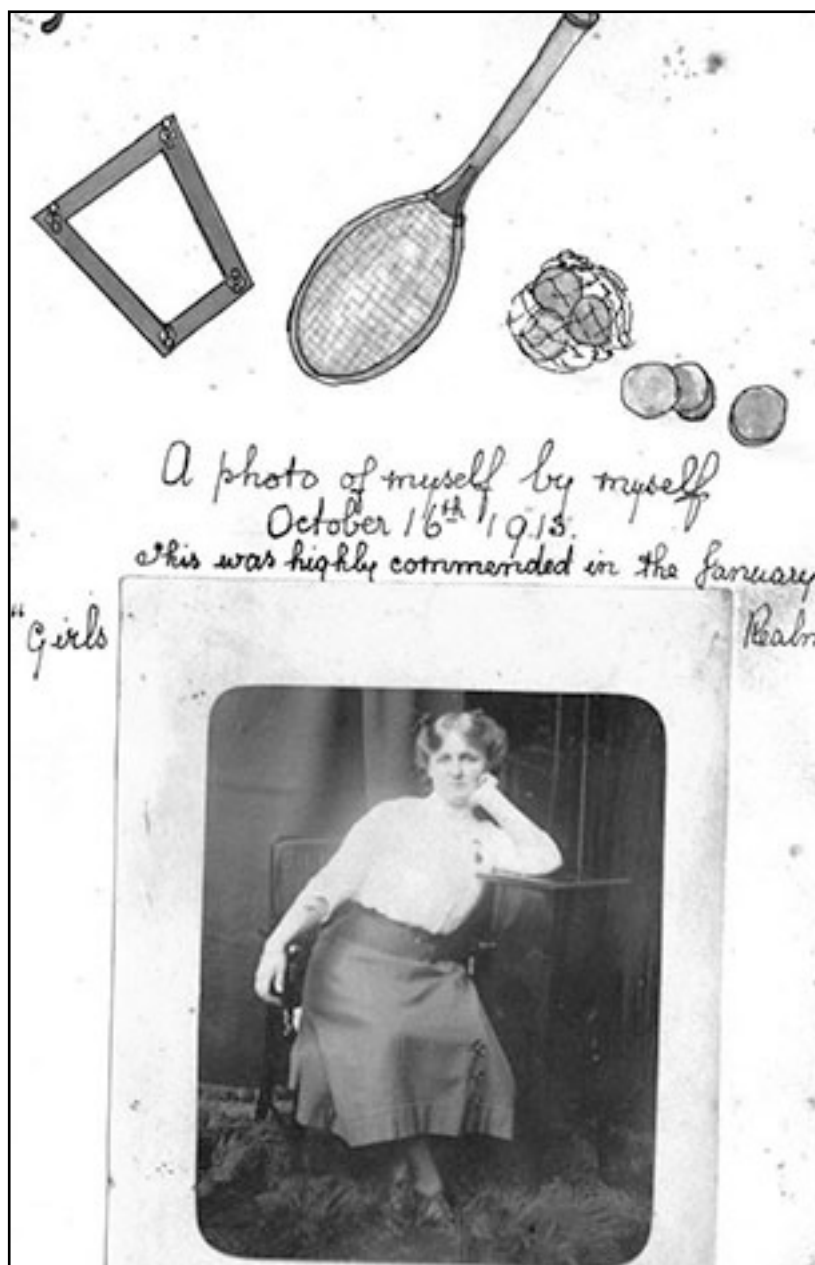 A photo of myself by myself
October 16th 1913.
This was highly commended in the January
"Girls Realm